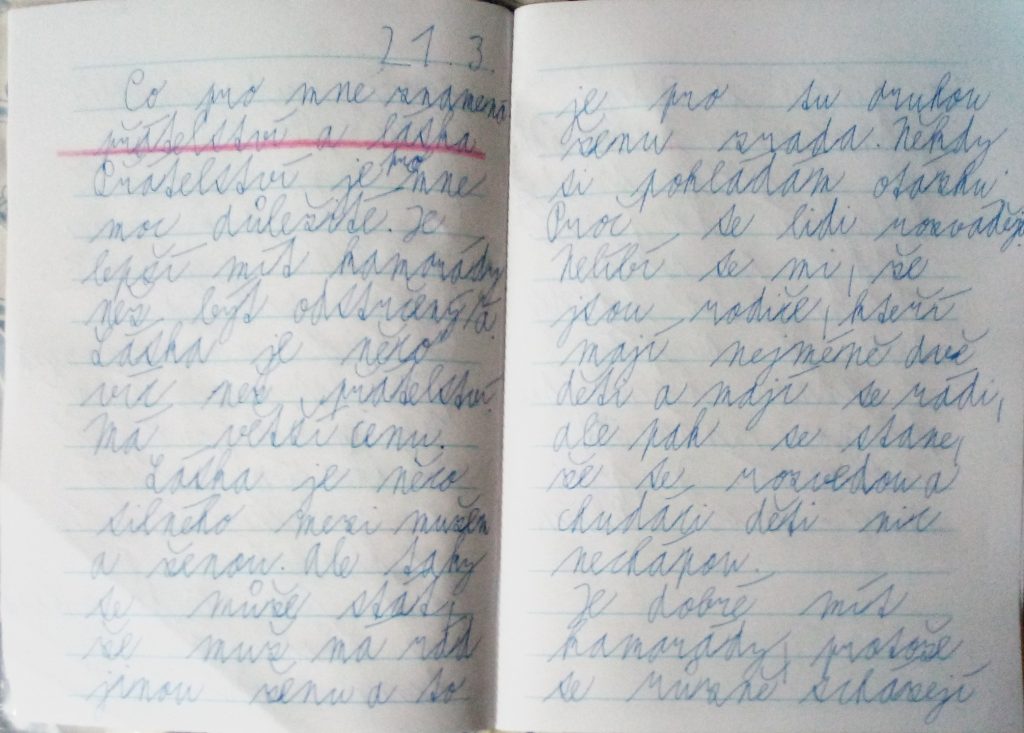 21. 3.
Co pro mne znamená
přátelství a láska
Přátelství je pro mne
moc důležité. Je
lepší mít kamarády
než být odstrčený/á.
Láska je něco
víc než přátelství.
Má větší cenu.
Láska je něco
silného mezi mužem
a ženou. Ale taky
se může státi,
že muž má rád
jinou ženu a to
je pro tu druhou
ženu zrada. Někdy
si pokládám otázku:
Proč se lidi rozvádějí.
Nelíbí se mi, že
jsou rodiče, kteří
mají nejméně dvě
děti a mají se rádi,
ale pak se stane,
že se rozvedou a
chudáci děti nic
nechápou.
Je dobré mít
kamarády, protože
se různě scházejí